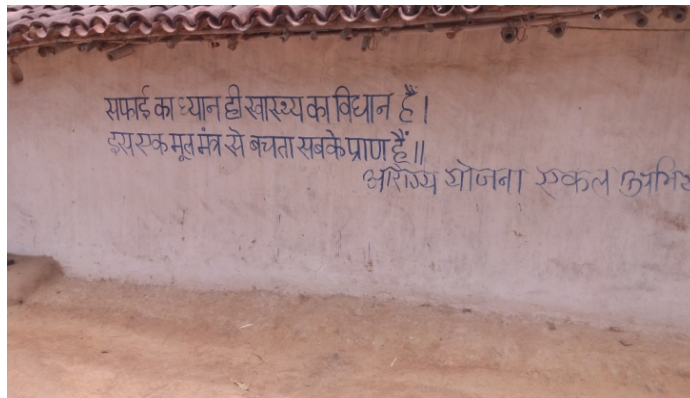 सफाई का ध्यान ही स्वास्थ्य का विधान हैं।
इस एक मूल मंत्र से बचता सबके प्राण हैं॥
आरोग्य योजना एकल